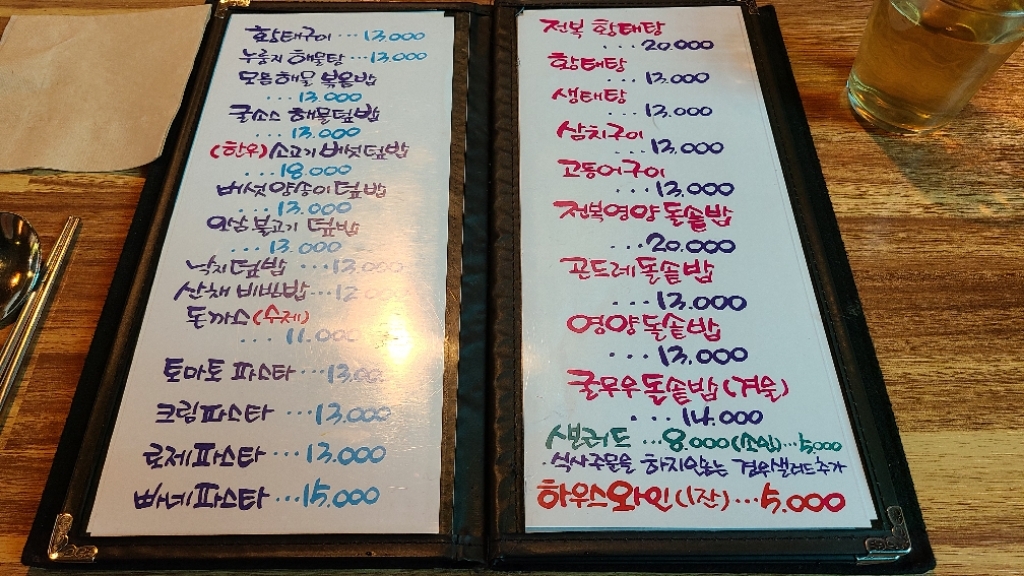 황태구이 ... 13,000
누룽지 해물탕 ... 13,000
모듬해물 볶음밥
... 13.000
굴소스 해물덮밥
... 13.000
(한우) 소고기 버섯덮밥
... 18.000
버섯양송이덮밥
... 13.000
불고기 덮밥
... 13.000
낙지덮밥 ... 13.000
산채 비빔밥 ... 12
돈까스 (수제)
... 11.000
토마토 파스타 ... 13.000
크림파스타 ... 13.000
로제파스타 ... 13.000
빠네파스타 ... 15.000
전복 황태탕
... 20.000
황태탕
... 13.000
생태탕
... 13.000
삼치구이
... 13.000
고등어구이
... 13.000
전복영양돌솥밥
... 20.000
곤드레돌솥밥
... 13.000
영양돌솥밥
... 13.000
굴무우돌솥밥 (겨울)
... 14.000
샐러드 ... 8.000 (소인) ... 5,000
·식사주문을 하지않는 경우샐러드추가
하우스와인 (1잔) ... 5.000